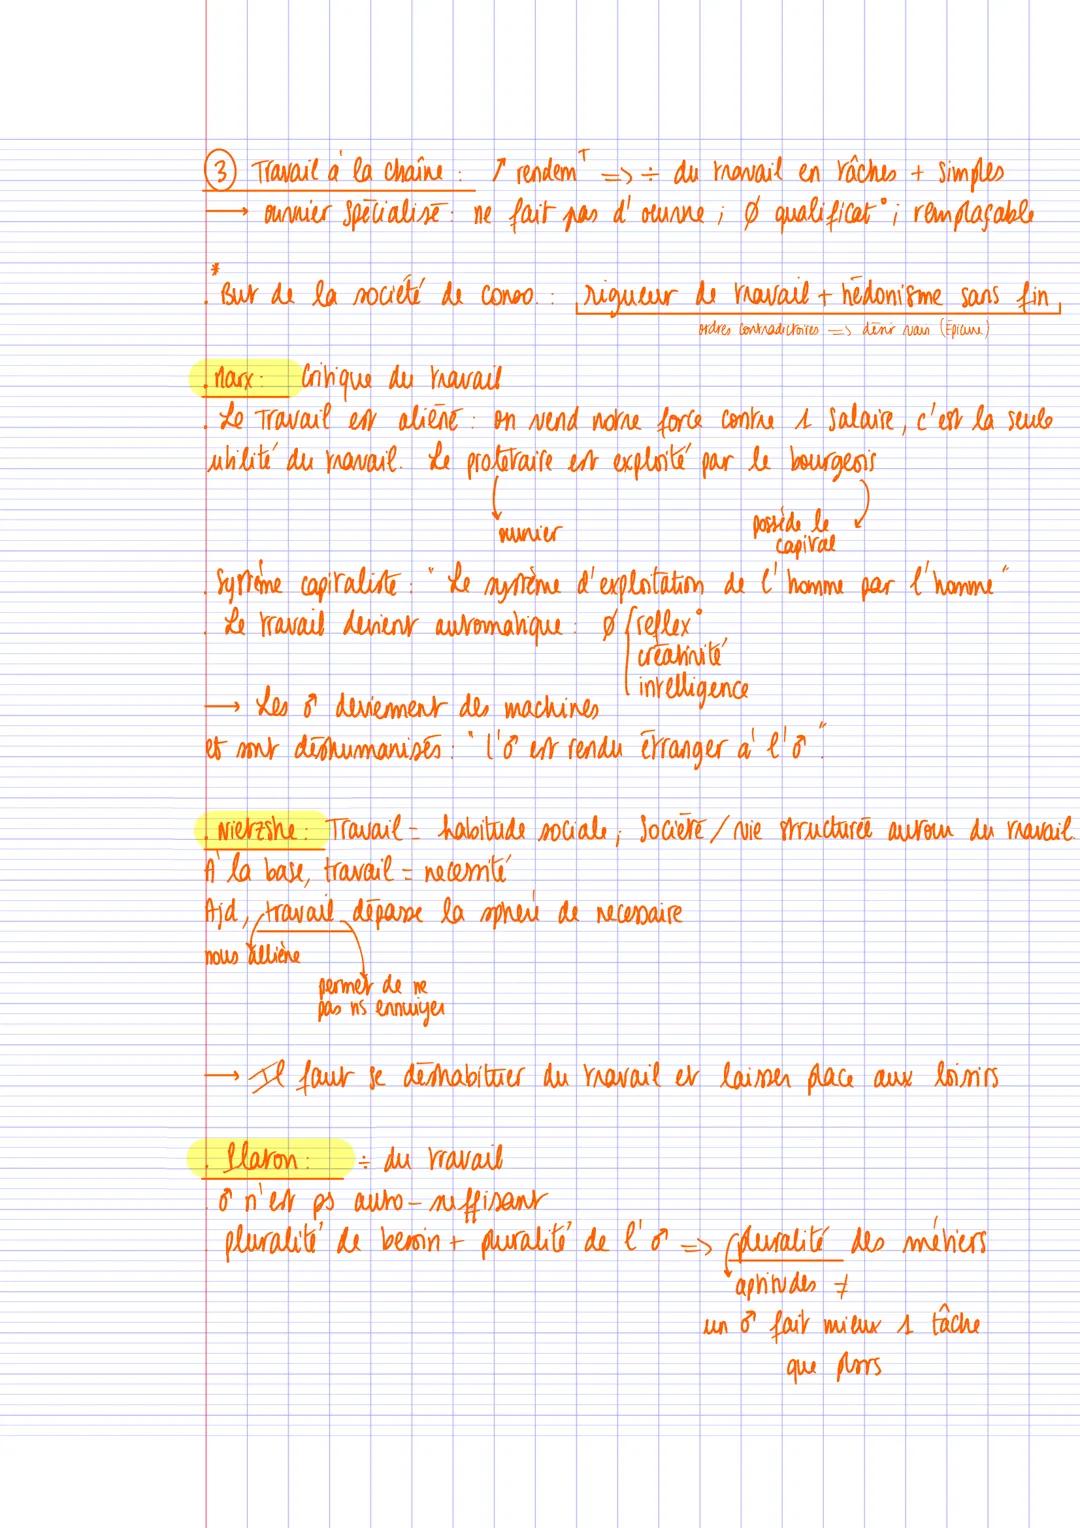 ③ Travail à la chaîne : ↗ rendemᵀ => ÷ du travail en tâches + simples
→ ouvrier spécialisé : ne fait pas d'oeuvre ; Ø qualificat° ; remplaçable
*
. But de la société de conso. : rigueur de travail + hédonisme sans fin
ordres contradictoires => désir vain (Épicure)
. Marx : Critique du travail
. Le travail est aliéné : on vend notre force contre 1 salaire, c'est la seule
utilité du travail. Le proletaire est exploité par le bourgeois
ouvrier
possède le
capital
. Système capitaliste : "Le système d'exploitation de l'homme par l'homme"
. Le travail devient automatique : Ø { reflex°
créativité
intelligence
→ Les ♂ deviennent des machines
et sont déshumanisés : "l'♂ est rendu étranger à l'♂".
. Nietzshe : Travail = habitude sociale ; Société / vie structurée autour du travail.
À la base, travail = necessité
Ajd, travail dépasse la sphère de necessaire
nous alliène
permet de ne
pas ns ennuyer
→ Il faut se déshabituer du travail et laisser place aux loisirs
. Platon : ÷ du travail
. ♂ n'est ps auto-suffisant
. pluralité de besoin + puralité de l'♂ => pluralité des métiers
aptitudes ≠
un ♂ fait mieux 1 tâche
que plsrs